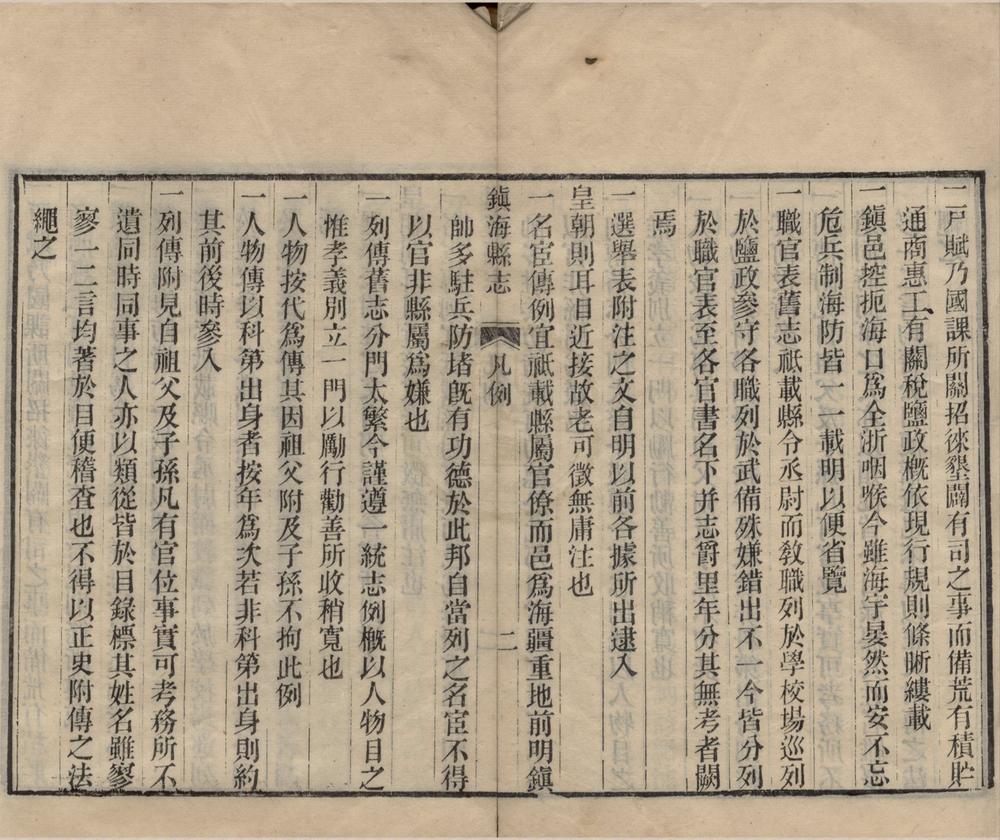 一戸賦乃國課所關招徠墾闢有司之事而備荒有積貯
通商惠工有關稅鹽政槪依現行規則條晰縷載
一鎮邑控扼海口爲全浙咽喉今雖海宇晏然而安不忘
危兵制海防皆一一載明以便省覽
一職官表舊志祇載縣令丞尉而敎職列於學校場巡列
於鹽政參守各職列於武備殊嫌錯出不一今皆分列
於職官表至各官書名下并志爵里年分其無考者闕
焉
一選舉表附注之文自明以前各據所出逮入
皇朝則耳目近接故老可徵無庸注也
一名宦傳例宜祇載縣屬官僚而邑爲海疆重地前明鎮
鎮海縣志
凡例
二
帥多駐兵防堵旣有功德於此邦自當列之名宦不得
以官非縣屬爲嫌也
一列傳舊志分門太繁今謹遵一統志例槪以人物目之
惟孝義別立一門以勵行勸善所收稍寬也
一人物按代爲傳其因祖父附及子孫不拘此例
一人物傳以科第出身者按年爲次若非科第出身則約
其前後時參入
一列傳附見自祖父及子孫凡有官位事實可考務所不
遺同時同事之人亦以類從皆於目錄標其姓名雖寥
寥一二言均著於目便稽查也不得以正史附傳之法
繩之